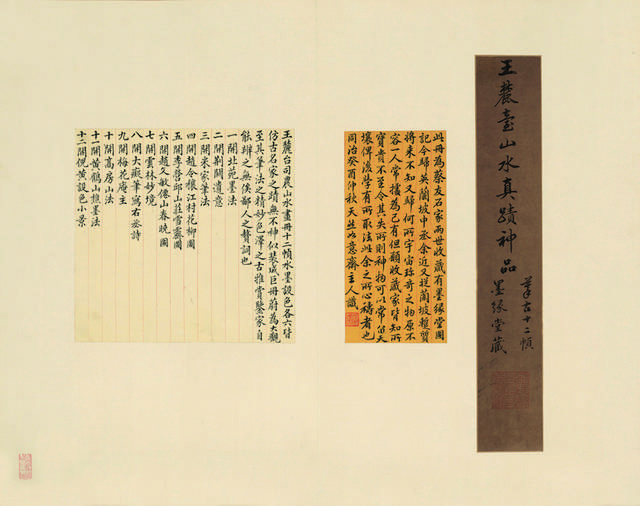 王麓臺山水真蹟神品
摹古十二幀
墨緣堂藏
此冊為蔡友石家兩世收藏有墨緣堂圖
記今歸吳蘭坡中丞余近又從蘭坡暫質
將來不知又歸何所宇宙珍奇之物原不
容一人常擅為己有但願收藏家皆知所
寶貴不至令其失所則神物可以常留天
壤俾後學有所取法此余之所心禱者也
同治癸酉仲秋天丝以意齋主人識
王麓台司農山水畫冊十二幀水墨設色各六皆
仿古名家之蹟無不神似裝成巨冊蔚為大觀
至其筆法之精妙色澤之古雅賞鑒家自
能辨之無俟鄙人之贊詞也
一開北苑墨法
二開荆關遺意
三開米家筆法
四開趙令穰江村花柳圖
五開李營邱山莊雪霽圖
六開趙文敏僊山春曉圖
七開雲林妙境
八開大癡筆寫右丞詩
九開梅花庵主
十開高房山法
十一開黃鶴山樵墨法
十二開倪黃設色小景